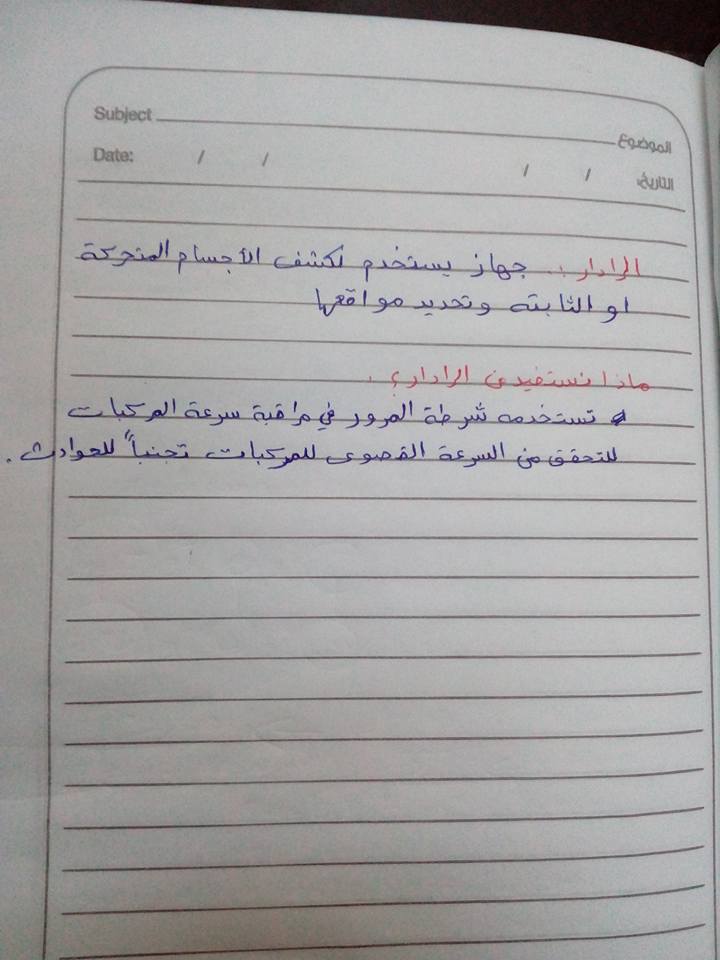 Subject الموضوع
Date: / / / / التاريخ:
الرادار :. جهاز يستخدم لكشف الأجسام المتحركة
او الثابته وتحديد مواقعها
ماذا نستفيد من الرادار ؟ .
تستخدمه شرطة المرور في مراقبة سرعة المركبات
للتحقق من السرعة القصوى للمركبات تجنباً للحوادث .